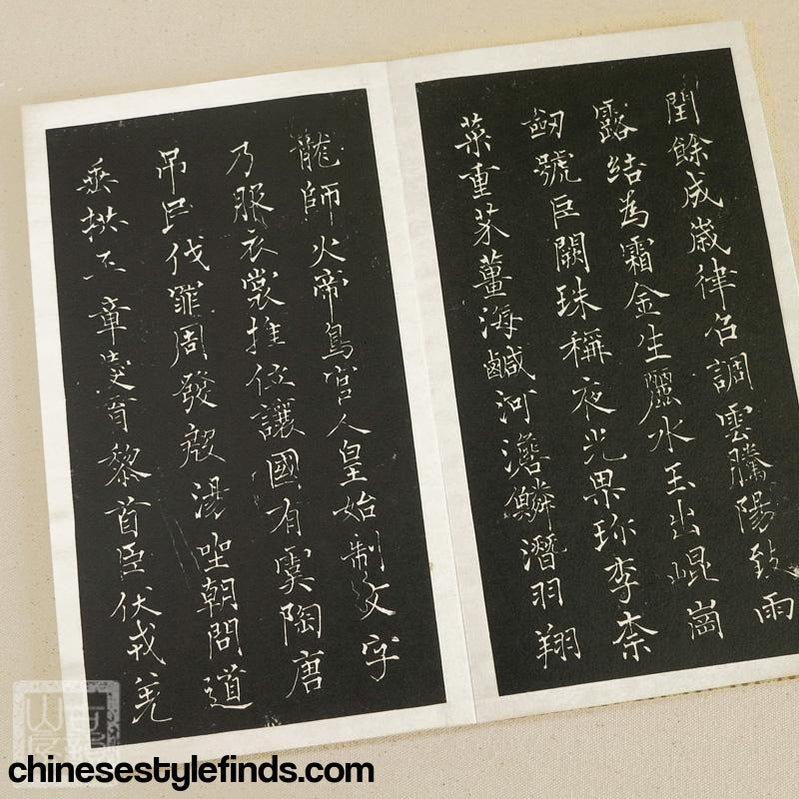 閏餘成歲律召調雲騰陽致雨
露結為霜金生麗水玉出崐崗
劒號巨闕珠稱夜光果珎李柰
菜重芥薑海鹹河澹鱗潛羽翔
龍師火帝鳥官人皇始制文字
乃服衣裳推位讓國有虞陶唐
吊民伐罪周發殷湯坐朝問道
垂拱平章愛育黎首臣伏戎羌
chinesestylefinds.com